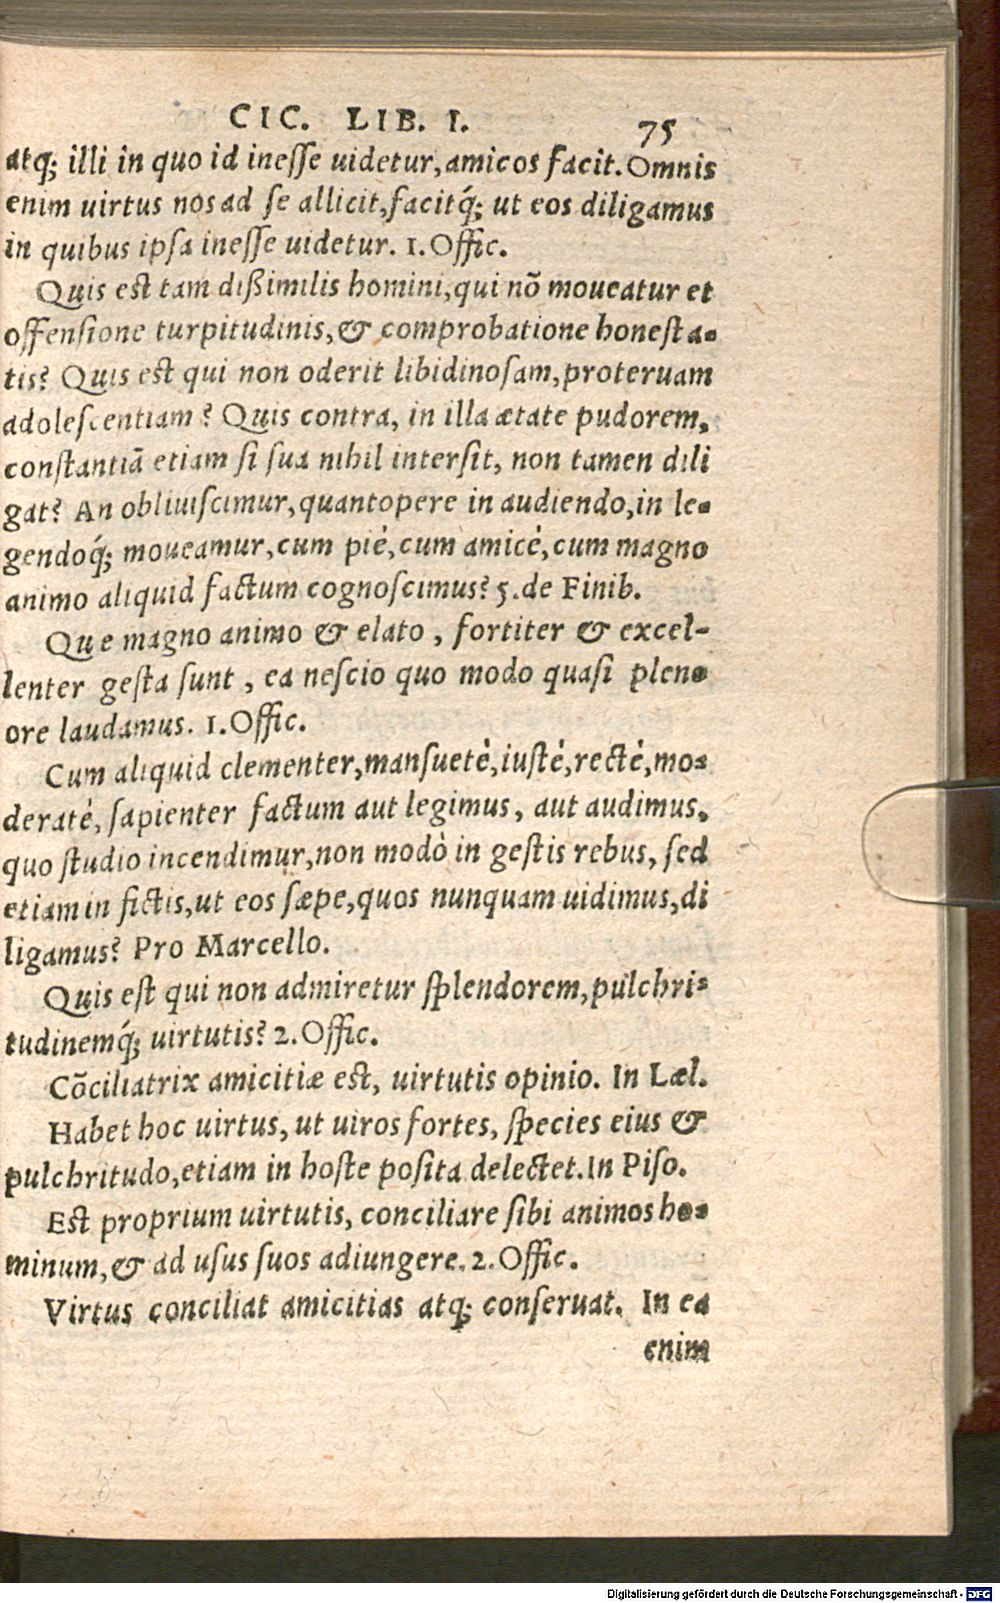 CIC. LIB. I. 75
atq́; illi in quo id inesse uidetur, amicos facit. Omnis
enim uirtus nos ad se allicit, facitq́; ut eos diligamus
in quibus ipsa inesse uidetur. 1. Offic.
Quis est tam dißimilis homini, qui nõ moueatur et
offensione turpitudinis, & comprobatione honesta-
tis? Quis est qui non oderit libidinosam, proteruam
adolescentiam? Quis contra, in illa ætate pudorem,
constantiã etiam si sua nihil intersit, non tamen dili
gat? An obliuiscimur, quantopere in audiendo, in le-
gendoq́; moueamur, cum piè, cum amicè, cum magno
animo aliquid factum cognoscimus? 5. de Finib.
Que magno animo & elato, fortiter & excel-
lenter gesta sunt, ea nescio quo modo quasi pleno
ore laudamus. 1. Offic.
Cum aliquid clementer, mansuetè, iustè, rectè, mo-
deratè, sapienter factum aut legimus, aut audimus,
quo studio incendimur, non modò in gestis rebus, sed
etiam in fictis, ut eos sæpe, quos nunquam uidimus, di
ligamus? Pro Marcello.
Quis est qui non admiretur splendorem, pulchri-
tudinemq́; uirtutis? 2. Offic.
Cõciliatrix amicitiæ est, uirtutis opinio. In Læl.
Habet hoc uirtus, ut uiros fortes, species eius &
pulchritudo, etiam in hoste posita delectet. In Piso.
Est proprium uirtutis, conciliare sibi animos ho-
minum, & ad usus suos adiungere. 2. Offic.
Virtus conciliat amicitias atq; conseruat. In ea
enim
Digitalisierung gefördert durch die Deutsche Forschungsgemeinschaft - DFG